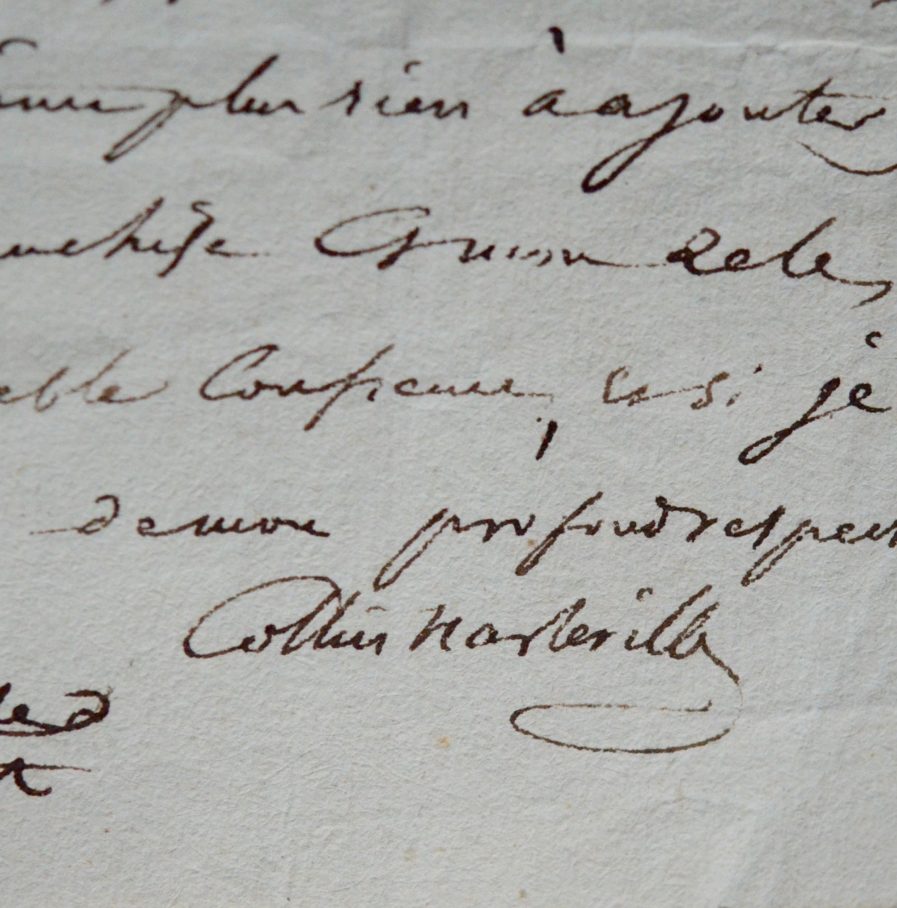 plus rien à ajouter
franchise & mon zele,
Confiance, et si je
de mon profond respect
Collin harleville